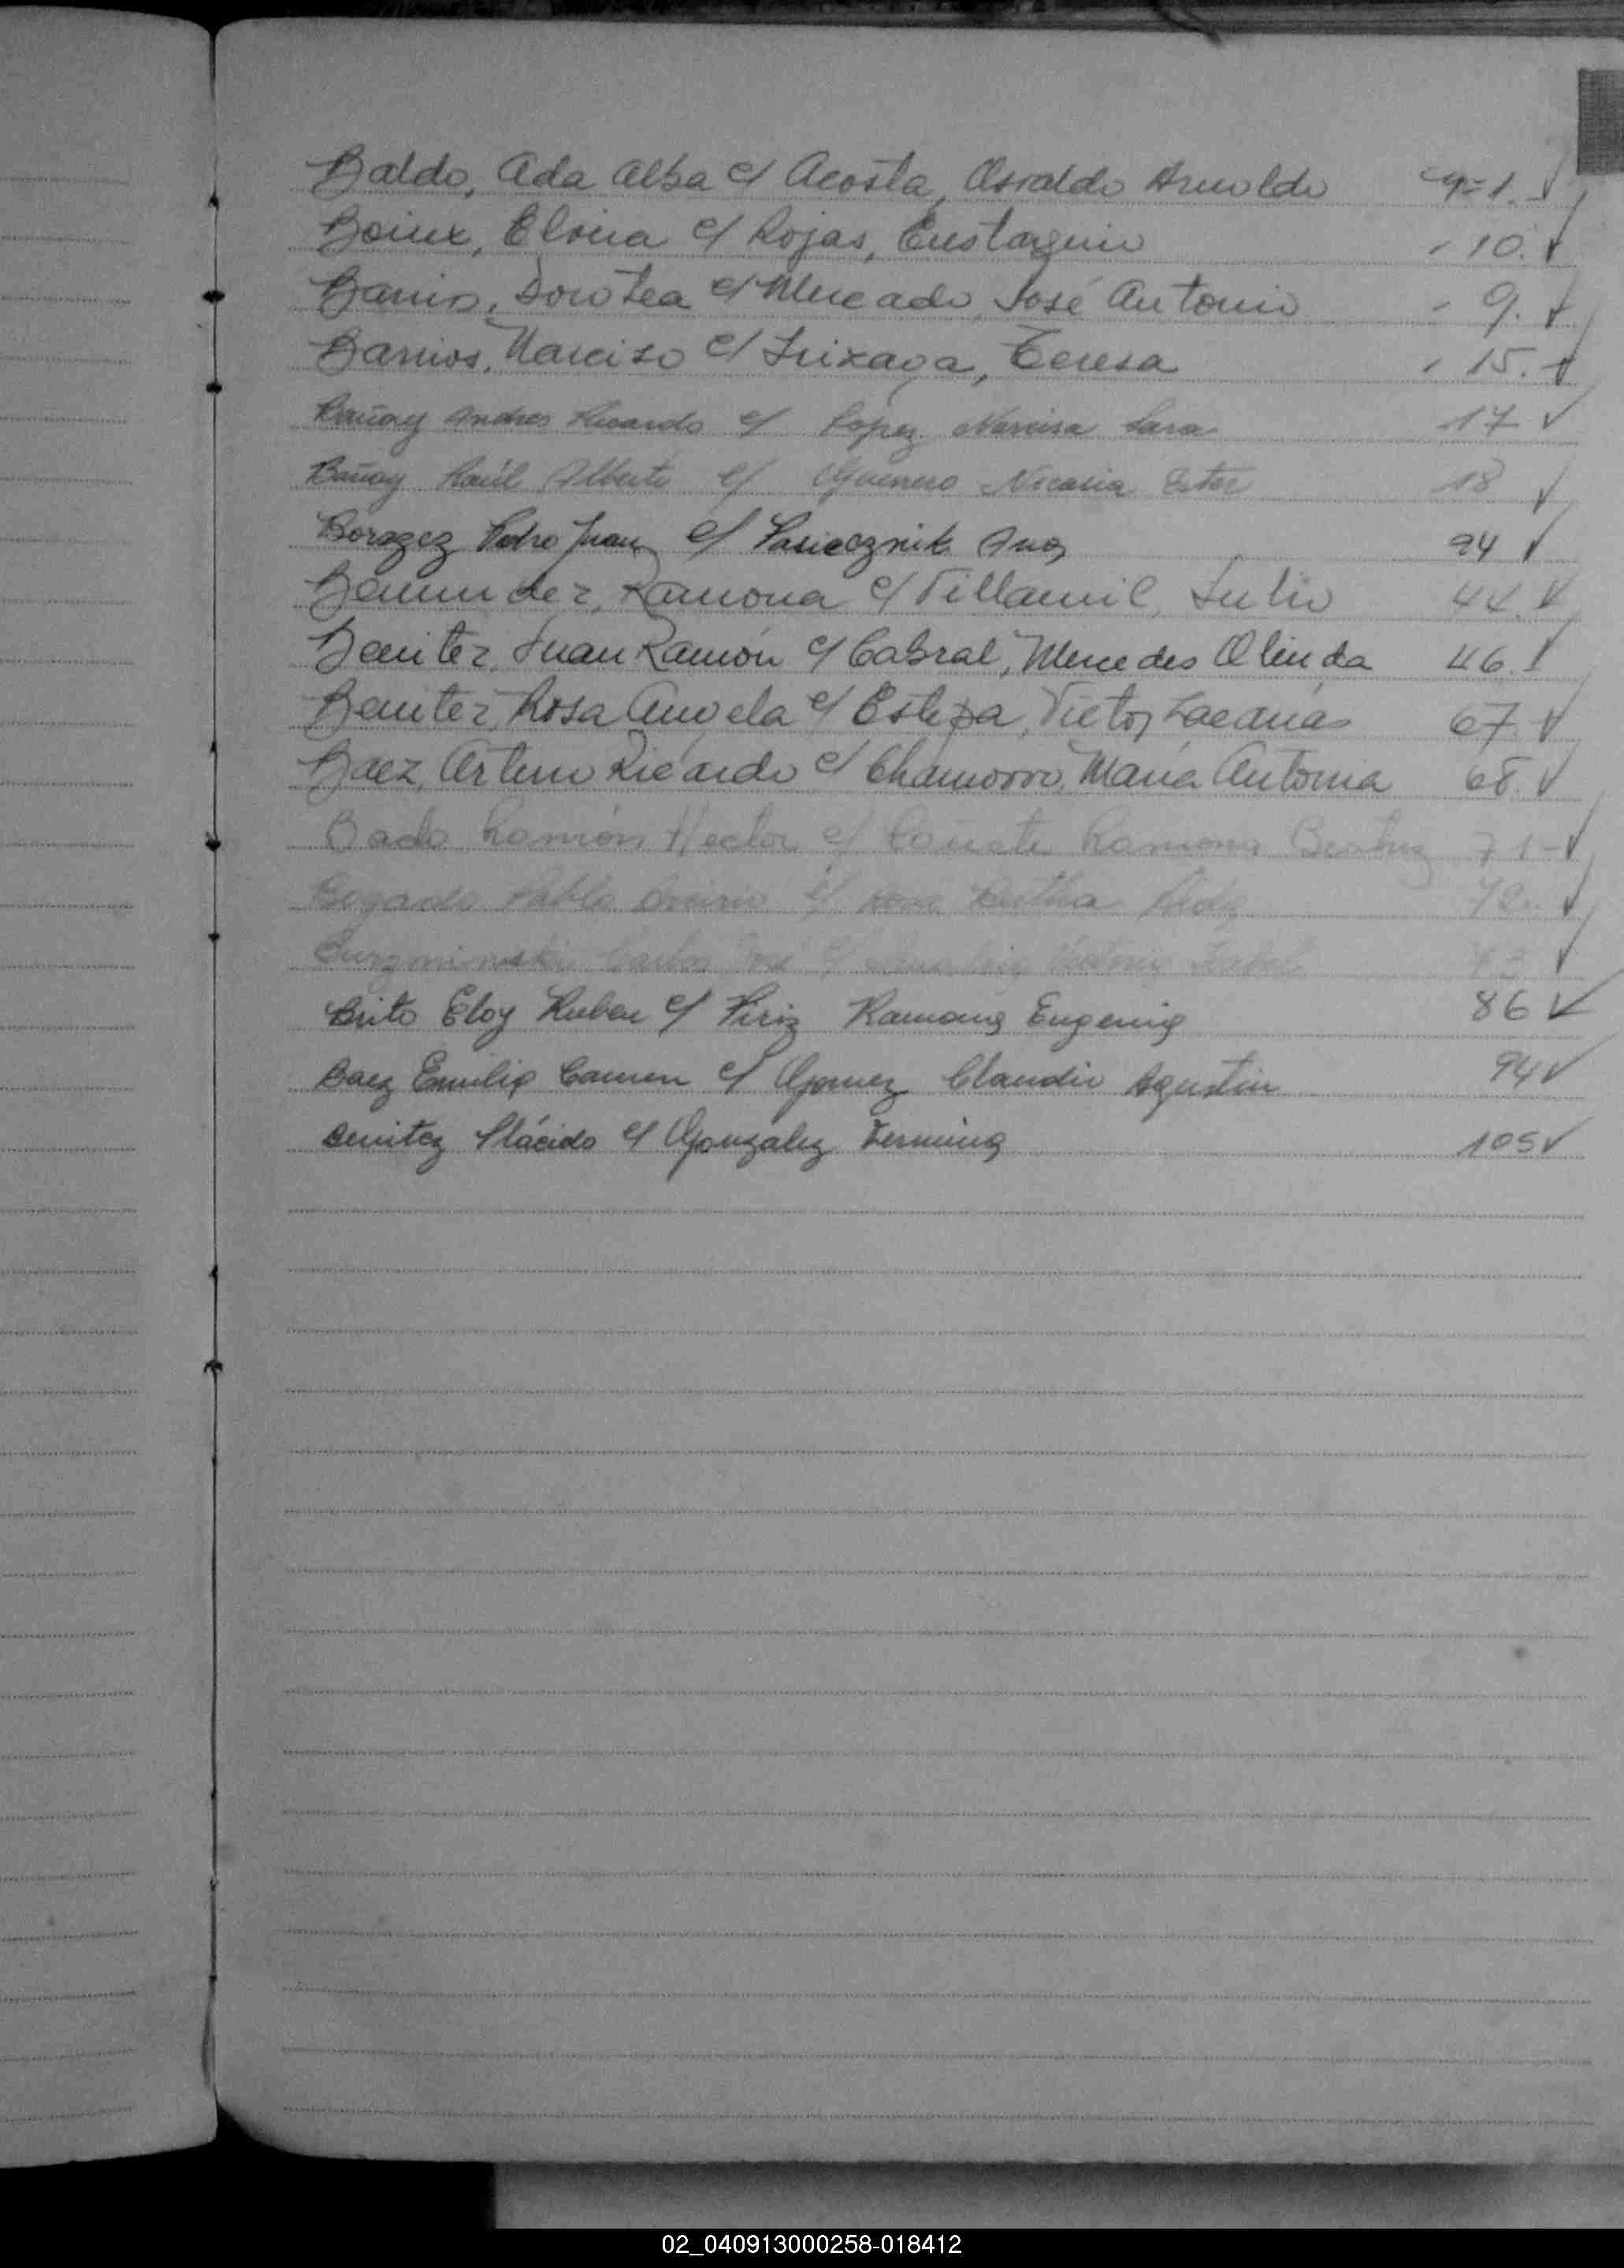 Baldo, Ada Alba c/ Acosta, Osvaldo Arnoldo 1. ✓
Elvira c/ Rojas, Eustaquio 10. ✓
Barrios, Dorotea c/ Mercado, José Antonio 9. ✓
Barrios, Narciso c/ Teresa 15. ✓
Bañay Andres Ricardo c/ Lopez Narcisa Sara 17 ✓
Bañay Raúl Alberto c/ Guerrero Nicasia Ester 18 ✓
Pedro Juan c/ Pasiecznik Ana 94 ✓
Ramona c/ Villamil, Julio ✓
Benitez, Juan Ramón c/ Cabral, Mercedes Olinda 46. ✓
Benitez, Rosa Angela c/ Victor 67. ✓
Baez, Arturo Ricardo c/ Chamorro, María Antonia 68. ✓
Bado Ramón Hector c/ Cañete Ramona Beatriz 71- ✓
Pablo c/ ✓
Carlos José c/ Isabel ✓
Brito Eloy Ruben c/ Piriz Ramona Eugenia 86 ✓
Baez Emilia Carmen c/ Gomez Claudio Agustin 94 ✓
Benitez Plácido c/ Gonzalez Fermina 105 ✓
02_040913000258-018412